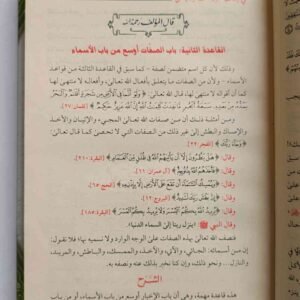 قال المؤلف رحمه الله
القاعدة الثانية: باب الصفات أوسع من باب الأسماء
وذلك لأن كل اسم متضمن لصفة - كما سبق في القاعدة الثالثة من قواعد
الأسماء - ولأن من الصفات ما يتعلق بأفعال الله تعالى، وأفعاله لا منتهى لها
كما أن أقواله لا منتهى لها، قال الله تعالى: ﴿وَلَوْ أَنَّمَا فِي الْأَرْضِ مِنْ شَجَرَةٍ أَقْلَامٌ وَالْبَحْرُ
[لقمان: ٢٧].
ومن أمثلة ذلك: أن من صفات الله تعالى المجيء والإتيان والأخذ
والإمساك والبطش إلى غير ذلك من الصفات التي لا تحصى كما قال تعالى:
﴿وَجَاءَ رَبُّكَ﴾ [الفجر: ٢٢].
وقال: ﴿هَلْ يَنْظُرُونَ إِلَّا أَنْ يَأْتِيَهُمُ اللَّهُ فِي ظُلَلٍ مِنَ الْغَمَامِ﴾ [البقرة: ٢١٠].
وقال: ﴿فَأَخَذَهُمُ اللَّهُ بِذُنُوبِهِمْ﴾ [آل عمران: ١١].
وقال: ﴿وَيُمْسِكُ السَّمَاءَ أَنْ تَقَعَ عَلَى الْأَرْضِ إِلَّا بِإِذْنِهِ﴾ [الحج: ٦٥].
وقال: ﴿إِنَّ بَطْشَ رَبِّكَ لَشَدِيدٌ﴾ [البروج: ١٢].
وقال: ﴿يُرِيدُ اللَّهُ بِكُمُ الْيُسْرَ وَلَا يُرِيدُ بِكُمُ الْعُسْرَ﴾ [البقرة: ١٨٥].
وقال النبي ﷺ: «ينزل ربنا إلى السماء الدنيا».
فنصف الله تعالى بهذه الصفات على الوجه الوارد ولا نسميه بها؛ فلا نقول:
إن من أسمائه: الجائي، والآتي، والآخذ، والممسك، والباطش، والمريد،
والنازل... ونحو ذلك، وإن كنا نخبر بذلك عنه ونصفه به.
الشرح
هذه قاعدة مهمة، وهي أن باب الأخبار أوسع من باب الأسماء، أو من باب